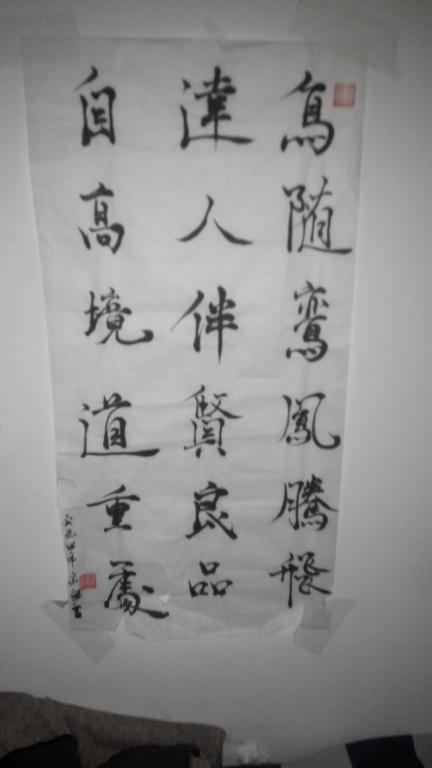 鳥随鸞鳳騰飛
達人伴賢良品
自高境道重